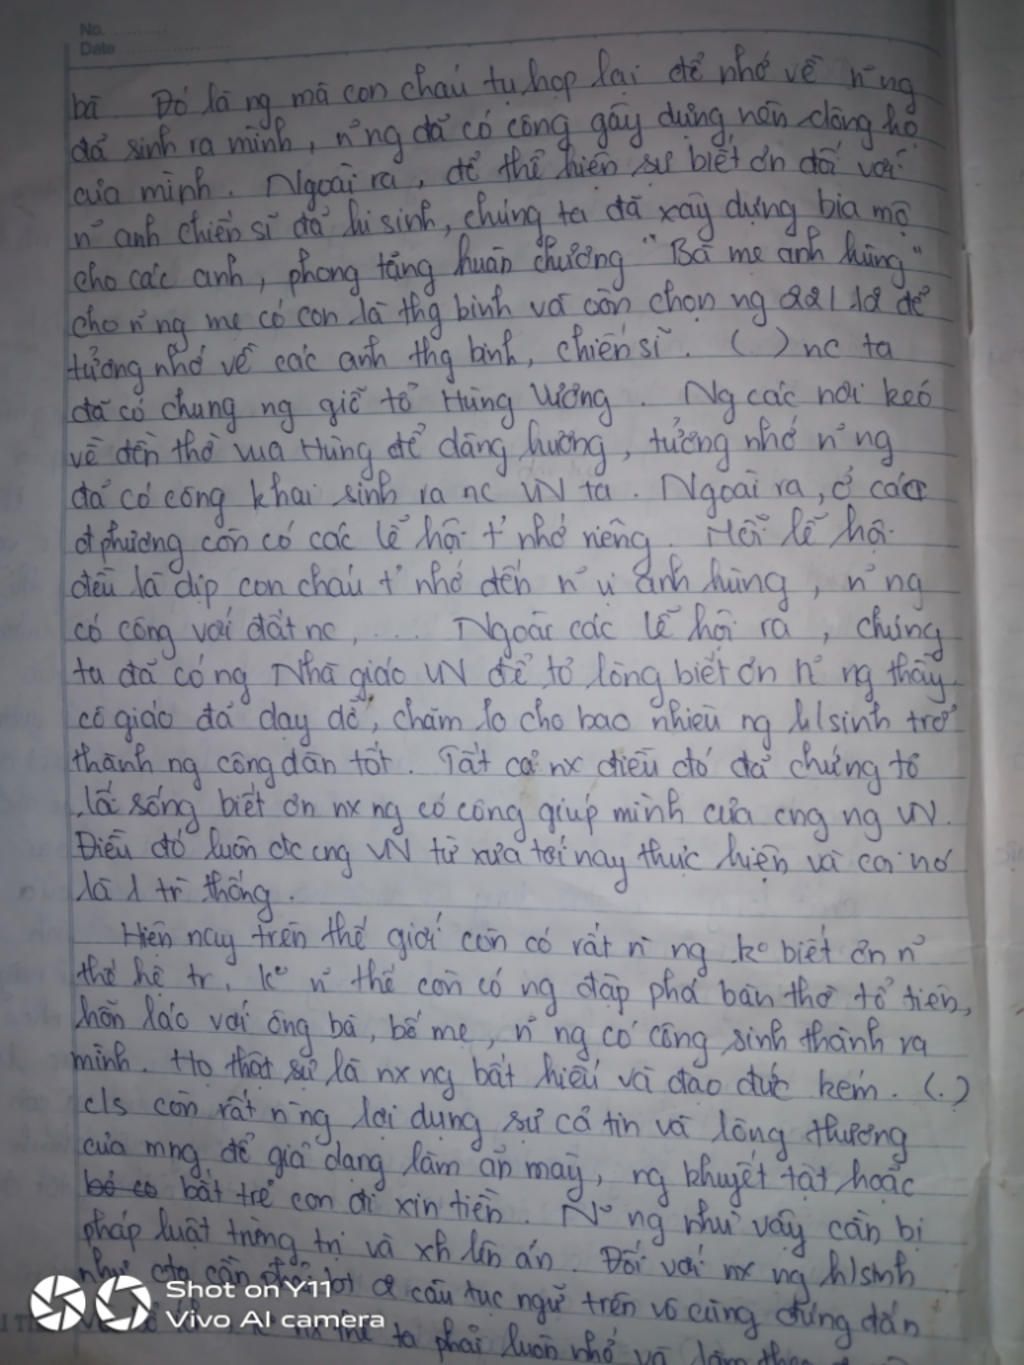 No.
Date
bà Đó là ng mà con cháu tụ họp lại để nhớ về n~ ng
đã sinh ra mình, n~ ng đã có công gây dựng nên dòng họ
của mình. Ngoài ra, để thể hiện sự biết ơn đối với
n~ anh chiến sĩ đã hi sinh, chúng ta đã xây dựng bia mộ
cho các anh, phong tặng huân chương "Bà mẹ anh hùng"
cho n~ ng mẹ có con là thg binh và còn chọn ng 22/12 để
tưởng nhớ về các anh thg binh, chiến sĩ. ( ) nc ta
đã có chung ng giỗ tổ Hùng Vương. Ng các nơi kéo
về đền thờ vua Hùng để dâng hương, tưởng nhớ n~ ng
đã có công khai sinh ra nc VN ta. Ngoài ra, ở các
đ phương còn có các lễ hội t' nhớ riêng. Mỗi lễ hội
đều là dịp con cháu t' nhớ đến n~ vị anh hùng, n~ ng
có công với đất nc, ... Ngoài các lễ hội ra, chúng
ta đã có ng Nhà giáo VN để tỏ lòng biết ơn n~ ng thầy
cô giáo đã dạy dỗ, chăm lo cho bao nhiêu ng h/sinh trở
thành ng công dân tốt. Tất cả nx điều đó đã chứng tỏ
lối sống biết ơn nx ng có công giúp mình của cng ng VN.
Điều đó luôn đc cng VN từ xưa tới nay thực hiện và coi nó
là 1 tr' thống.
Hiện nay trên thế giới còn có rất n` ng ko biết ơn n~
thế hệ tr', ko n~ thế còn có ng đập phá bàn thờ tổ tiên,
hỗn láo với ông bà, bố mẹ, n~ ng có công sinh thành ra
mình. Họ thật sự là nx ng bất hiếu và đạo đức kém. (.)
c/s còn rất n` ng lợi dụng sự cả tin và lòng thương
của mng để giả dạng làm ăn mày, ng khuyết tật hoặc
bắt trẻ con đi xin tiền. N~ ng như vậy cần bị
pháp luật trừng trị và xh lên án. Đối với nx ng h/sinh
như cta cần câu tục ngữ trên vô cùng đúng đắn
thế ta phải luôn nhớ và làm theo
Shot on Y11
Vivo AI camera